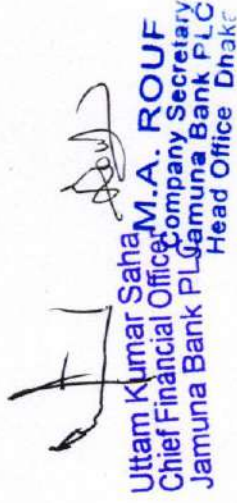 Uttam Kumar Saha
Chief Financial Officer
Jamuna Bank PLC
M.A. ROUF
Company Secretary
Jamuna Bank PLC
Head Office Dhaka